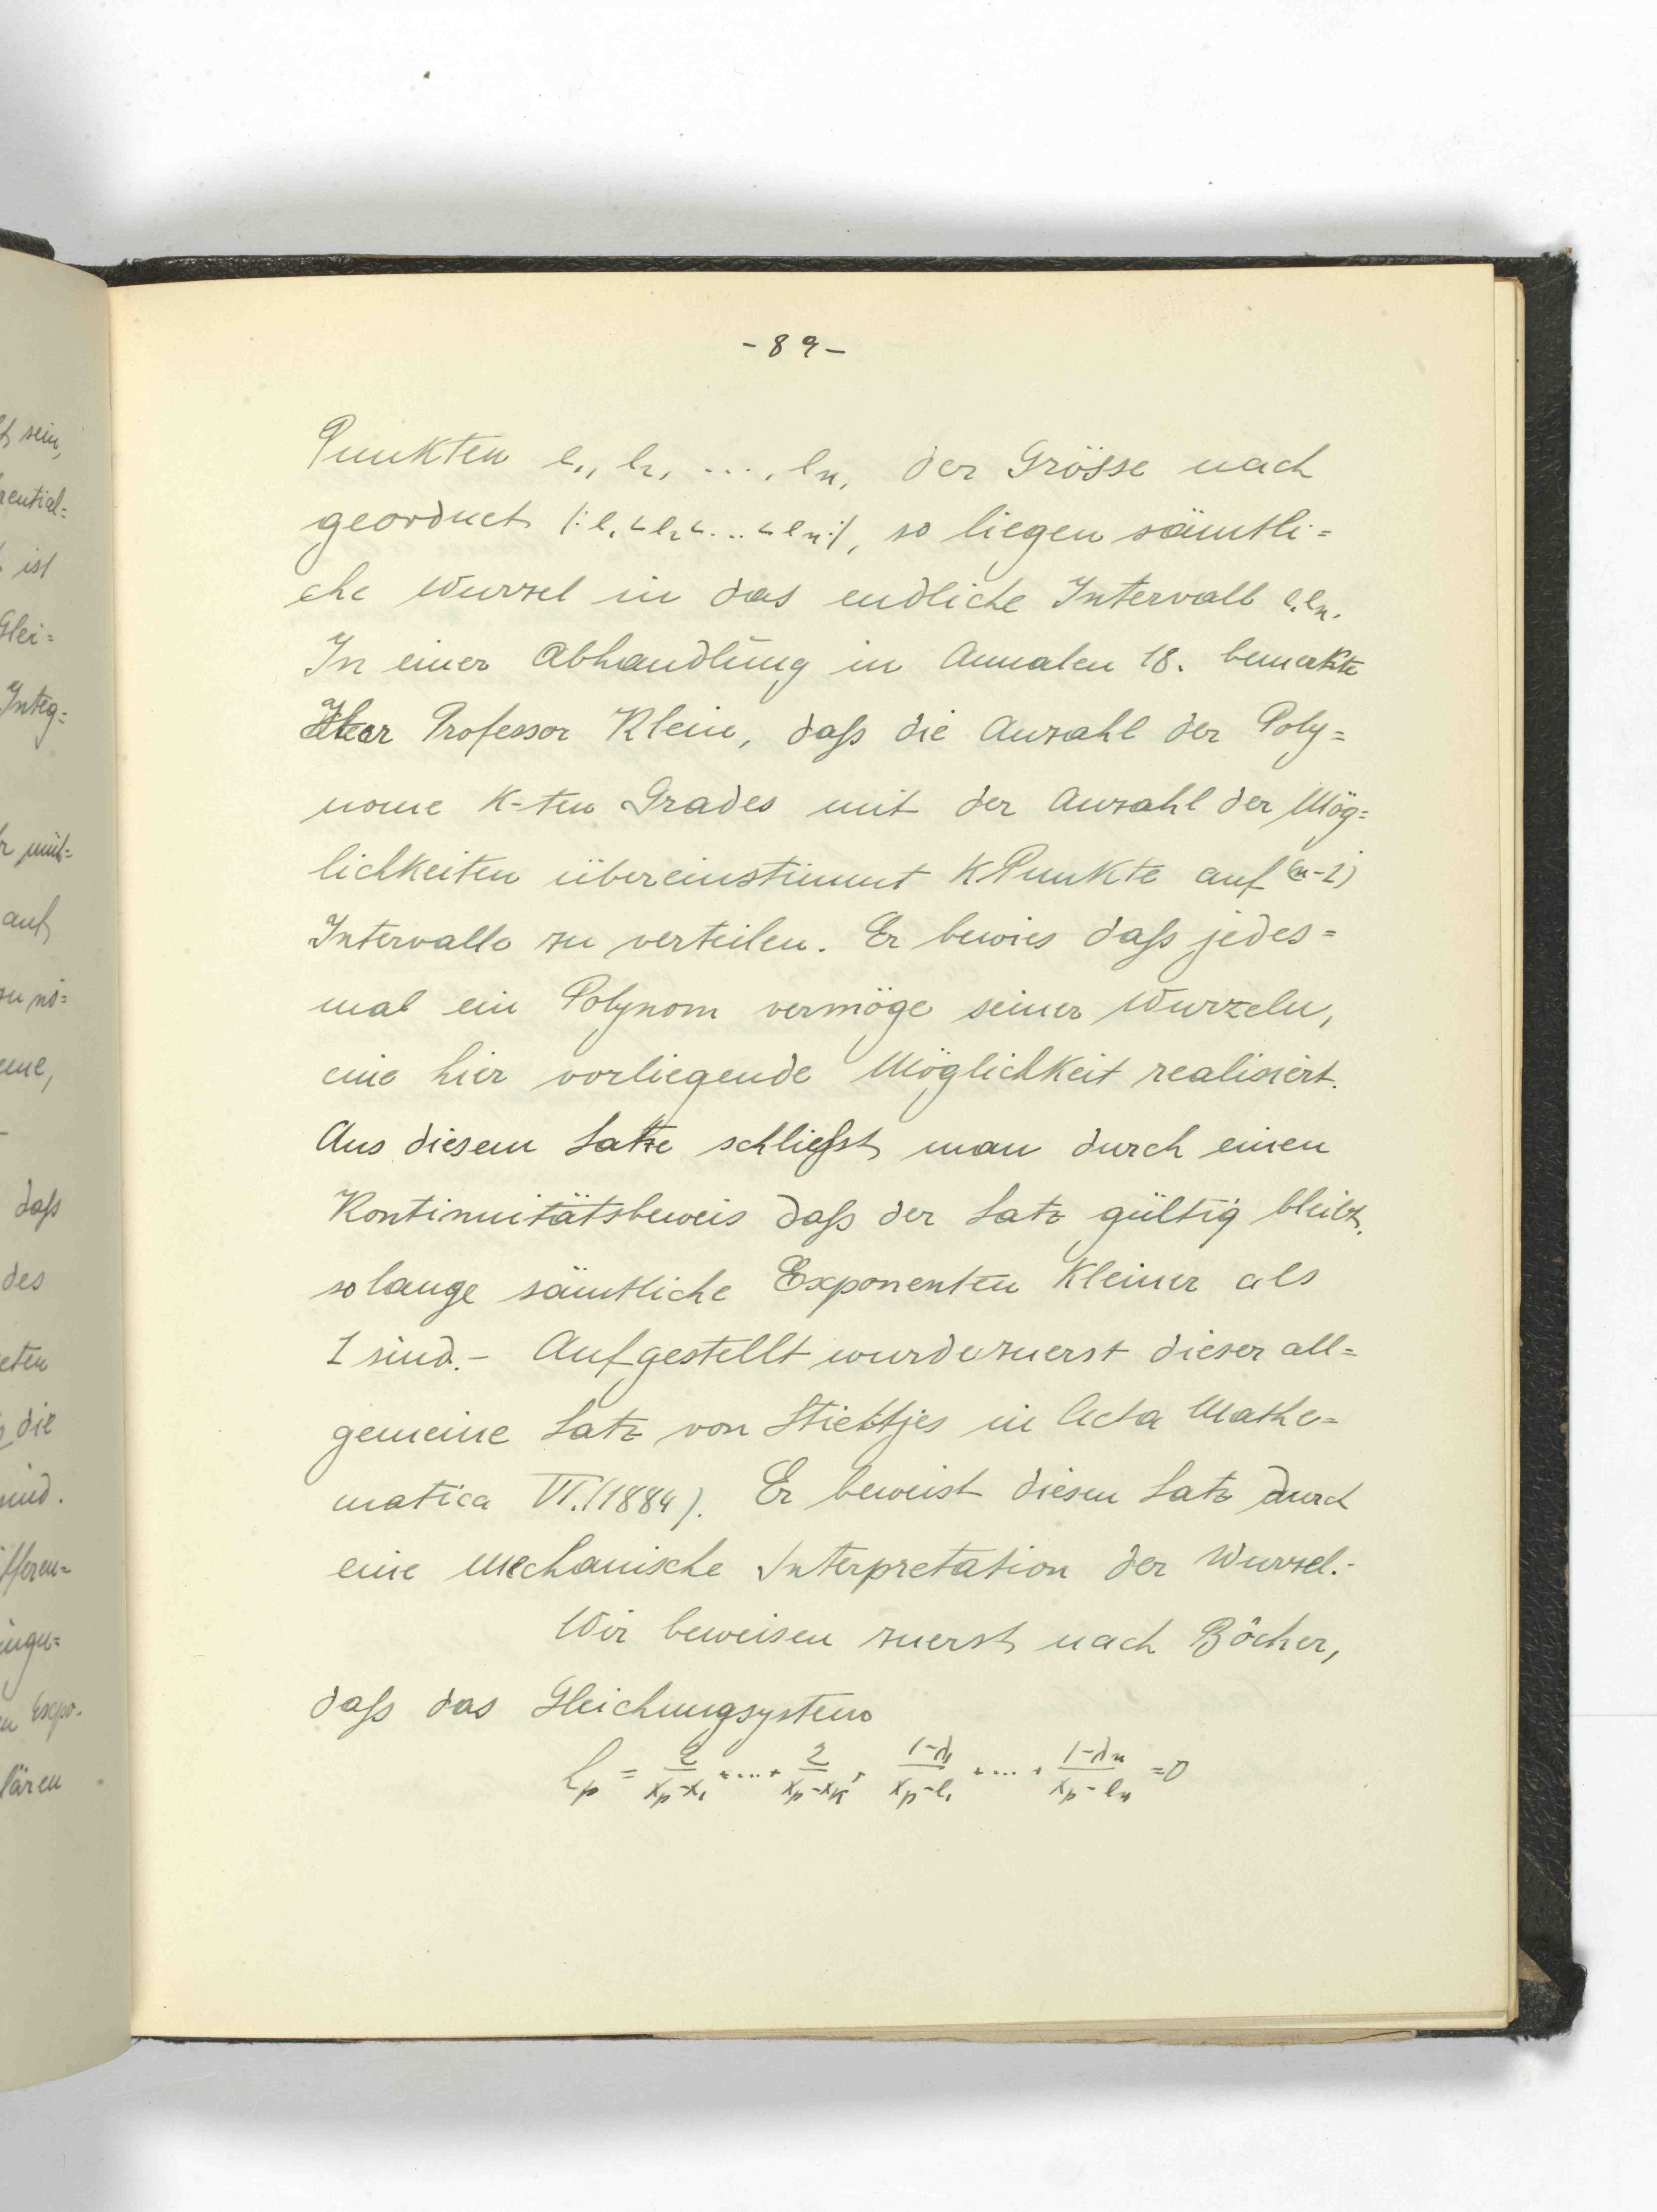 -89-
Punkten e₁, e₂, ..., eₙ, der Grösse nach
geordnet /: e₁ < e₂ < ... < eₙ :/, so liegen sämtli=
che Wurzel in das endliche Intervall e₁eₙ.
In einer Abhandlung in Annalen 18. bemerkte
Herr Professor Klein, daſs die Anzahl der Poly=
nome K-ten Grades mit der Anzahl der Mög=
lichkeiten übereinstimmt K Punkte auf (n-1)
Intervalle zu verteilen. Er bewies daſs jedes=
mal ein Polynom vermöge seiner Wurzeln,
eine hier vorliegende Möglichkeit realisiert.
Aus diesem Satze schlieſst man durch einen
Kontinuitätsbeweis daſs der Satz gültig bleibt,
solange sämtliche Exponenten Kleiner als
1 sind.- Aufgestellt wurde zuerst dieser all=
gemeine Satz von Stieltjes in Acta Mathe=
matica VI. (1884). Er beweist diesen Satz durch
eine mechanische Interpretation der Wurzel.-
Wir beweisen zuerst nach Bôcher,
daſs das Gleichungsystem
fₚ = 2/(xₚ-x₁) + .... + 2/(xₚ-xₖ) + (1-λ₁)/(xₚ-e₁) + .... + (1-λₙ)/(xₚ-eₙ) = 0
t sein,
rential=
ist
Glei=
Integ=
auf
daſs
des
die
sind.
fferen=
ingu=
Expo-
lären